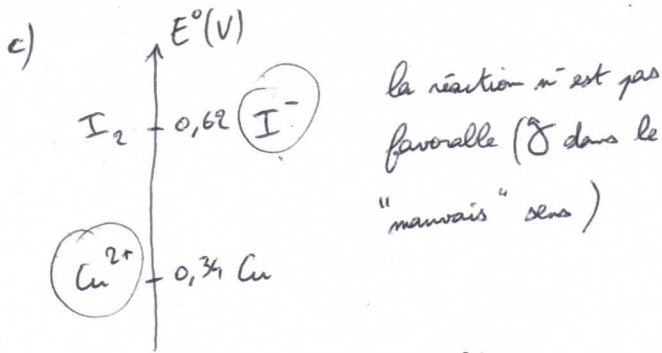 c)
E°(V)
I₂ 0,62 I⁻
Cu²⁺ 0,34 Cu
la réaction n'est pas
favorable (γ dans le
"mauvais" sens)